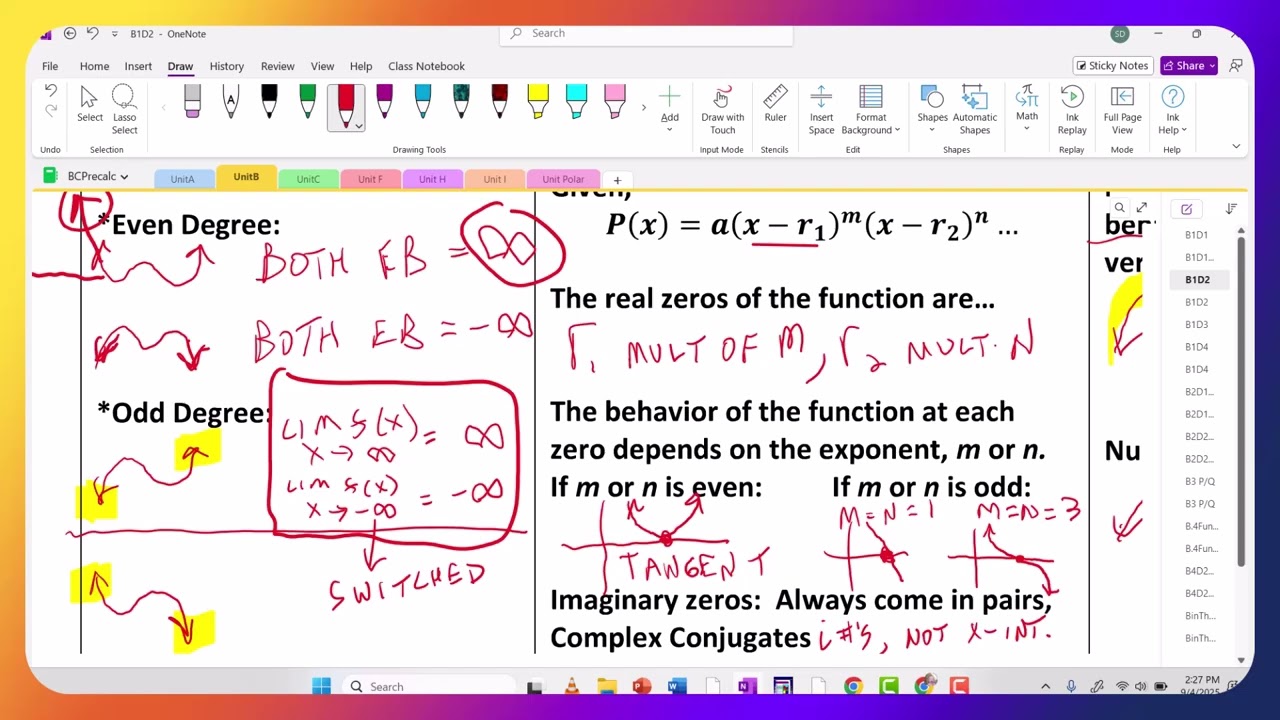 B1D2 - OneNote
Search
SD
File Home Insert Draw History Review View Help Class Notebook
Sticky Notes
Share
Undo
Select
Lasso Select
Selection
Drawing Tools
Add
Draw with Touch
Input Mode
Ruler
Stencils
Insert Space
Format Background
Edit
Shapes
Automatic Shapes
Shapes
Math
Ink Replay
Replay
Full Page View
Mode
Ink Help
Help
BCPrecalc
UnitA UnitB UnitC Unit F Unit H Unit I Unit Polar
*Even Degree:
BOTH EB = ∞
BOTH EB = -∞
*Odd Degree:
LIM f(x) = ∞
x → ∞
LIM f(x) = -∞
x → -∞
SWITCHED
Given,
P(x) = a(x − r₁)ᵐ(x − r₂)ⁿ ...
The real zeros of the function are...
r₁ MULT OF M, r₂ MULT. N
The behavior of the function at each
zero depends on the exponent, m or n.
If m or n is even: If m or n is odd:
M=N=1 M=N=3
TANGENT
Imaginary zeros: Always come in pairs,
Complex Conjugates i #'s, NOT X-INT.
ber
ver
Nu
B1D1
B1D1...
B1D2
B1D2
B1D3
B1D4
B1D4
B2D1...
B2D1...
B2D2...
B2D2...
B3 P/Q
B3 P/Q
B.4Fun...
B.4Fun...
B4D2...
B4D2...
BinTh...
BinTh...
Search
2:27 PM
9/4/2025